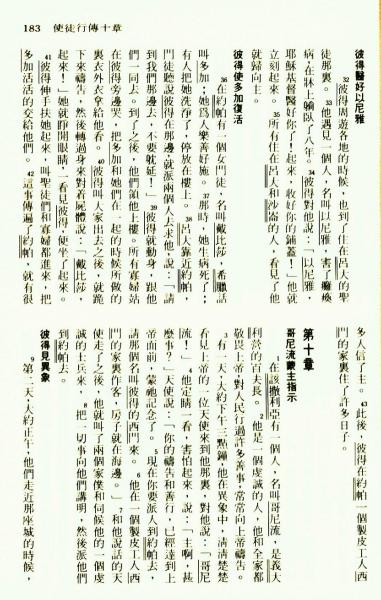 183 使徒行傳十章
彼得醫好以尼雅
32彼得周遊各地的時候，也到了住在呂大的聖
徒那裏。33他遇見一個人，名叫以尼雅，害了癱瘓
病，在牀上躺臥了八年。34彼得對他說：「以尼雅，
耶穌基督醫好你了！起來，收好你的鋪蓋！」他就
立刻起來。35所有住在呂大和沙崙的人，看見了他
就歸向主。
彼得使多加復活
36在約帕有一個女門徒，名叫戴比莎，希臘話
叫多加；她爲人樂善好施。37那時，她生病死了；
有人把她洗淨了，停放在樓上。38呂大靠近約帕，
門徒聽說彼得在那邊，就派兩個人去求他，說：「請
到我們那邊去，不要躭延！」39彼得就動身，跟他
們一同去。到了之後，他們領他上樓。所有寡婦站
在彼得旁邊哭，把多加和她們在一起的時候所做的
裏衣外衣拿給他看。40彼得叫人家出去之後，就跪
下來禱告，然後轉過身來對着屍體說：「戴比莎，
起來！」她就睜開眼睛，一看見彼得，便坐了起來。
41彼得伸手扶她起來，叫聖徒們和寡婦都進來，把
多加活活的交給他們。42這事傳遍了約帕，就有很
多人信了主。43此後，彼得在約帕一個製皮工人西
門的家裏住了許多日子。
第十章
哥尼流蒙主指示
1在該撒利亞有一個人，名叫哥尼流，是義大
利營的百夫長。2他是一個虔誠的人，他和全家都
敬畏上帝，對人民行過許多善事，常常向上帝禱告。
3有一天，大約下午三點鐘，他在異象中，清清楚楚
看見上帝的一位天使來到他那裏，對他說：「哥尼
流！」4他定睛一看，害怕起來，說：「主啊，甚
麼事？」天使說：「你的禱告和善行，已經達到上
帝面前，蒙祂記念了。5現在你要派人到約帕去，
請那個名叫彼得的西門來。6他在一個製皮工人西
門的家裏作客，房子就在海邊。」7和他說話的天
使走了之後，他就叫了兩個家僕和伺候他的一個虔
誠的士兵來，8把一切事向他們講明，然後派他們
到約帕去。
彼得見異象
9第二天，大約正午，他們走近那座城的時候，